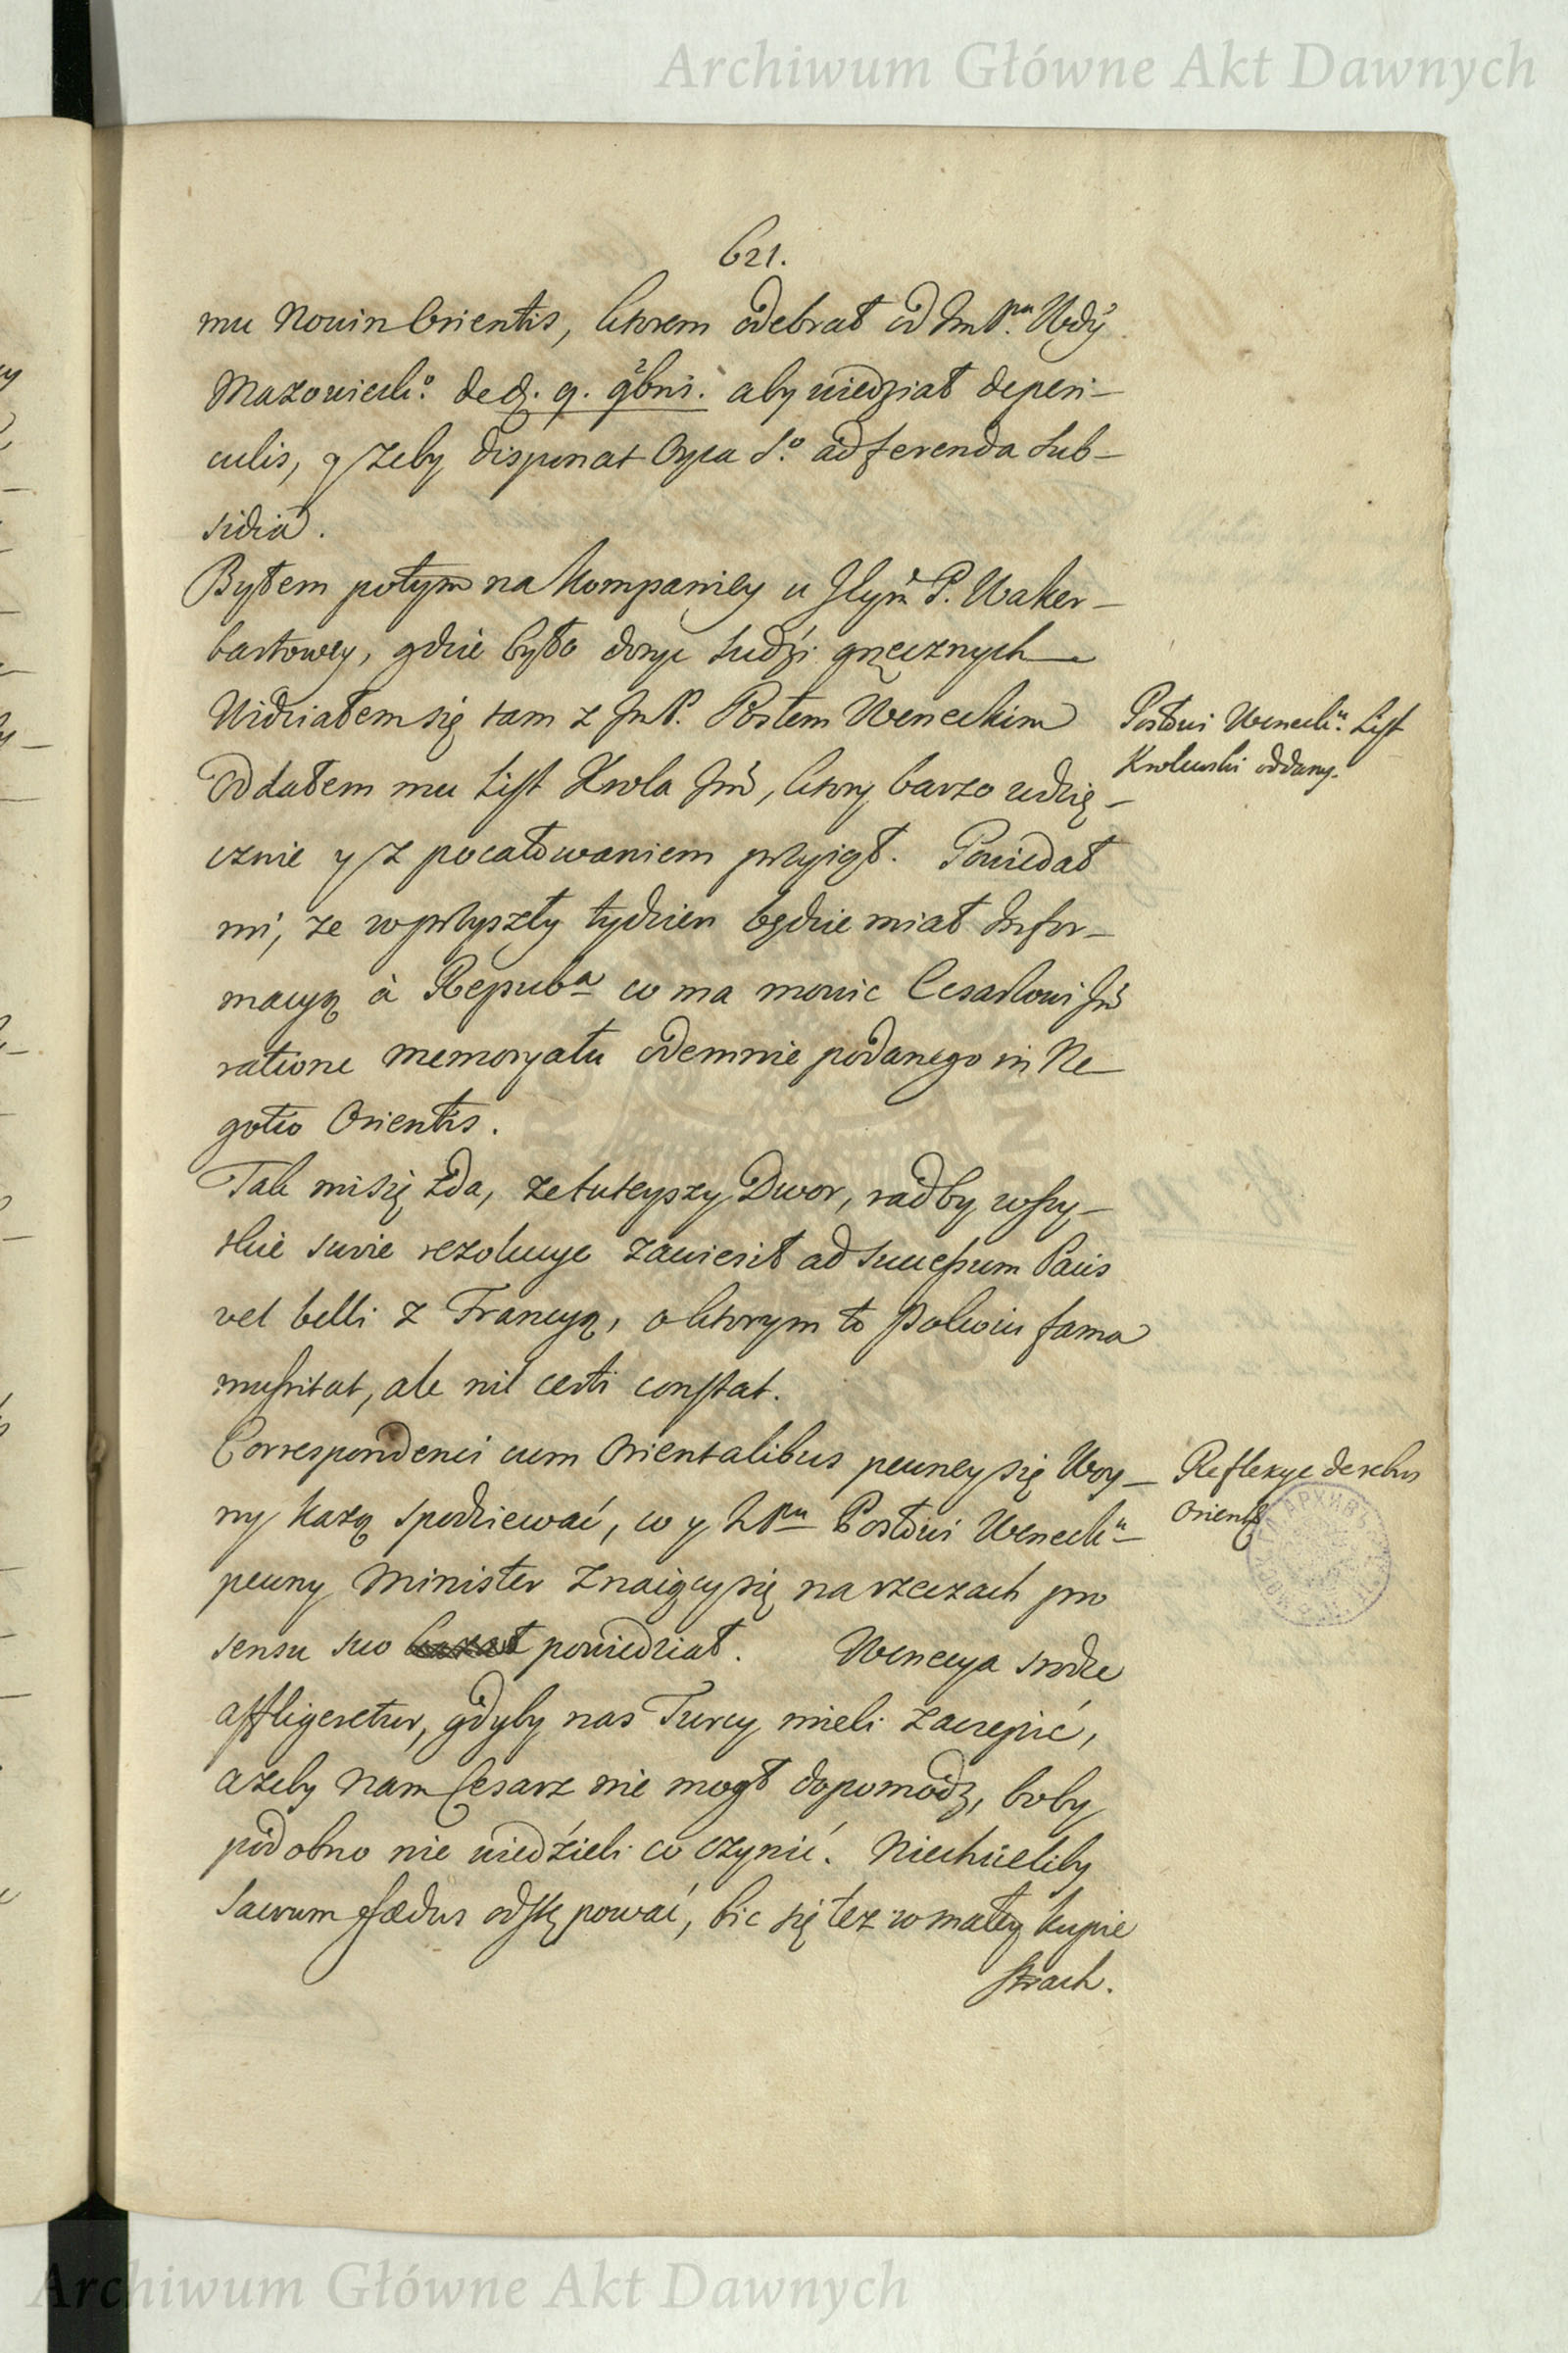 Archiwum Główne Akt Dawnych
621.
mu Nowin Orientis, ktorem odebrał od Jm Pna Wdy
Mazowiecko. de d. 9. 9bris. aby wiedział de peri-
culis, y zeby disponat Oyca So. ad ferenda sub-
sidia.
Byłem potym na kompaniey u Jeym P. Waker-
bartowey, gdzie było dosyc ludzi grzecznych
Widziałem się tam z Jm P. Posłem Weneckim
Oddałem mu List Krola Jmci, ktory barzo wdzię-
cznie y z pocałowaniem przyiął. Powiedał
mi, ze w przyszły tydzien będzie miał Infor-
macyą à Repuba co ma mowic Cesarzowi Jmci
ratione memoryału odemnie podanego in Ne-
gotio Orientis.
Tak mi się zda, ze tuteyszy Dwor, rad by wszy-
stkie swoie rezolucye zawiesił ad successum Pacis
vel belli z Francyą, o ktorym to pokoiu fama
mussitat, ale nil certi constat.
Correspondenci cum Orientalibus pewney się Woy-
ny każą spodziewać, co y Pnu Posłowi Wenecku
pewny Minister znaiący się na rzeczach pro
sensu suo powiedział. Wenecya srodze
affligeretur, gdyby nas Turcy mieli zaczepić,
a zeby nam Cesarz nie mogł dopomodz, boby
podobno nie wiedzieli co czynić. Niechcieliby
Sacrum fœdus odstępować, bic się tez w małey kupie
strach.
Posłowi Wenecku. List
Krolewski oddany.
Reflexye de rebus
Orientis
Archiwum Główne Akt Dawnych